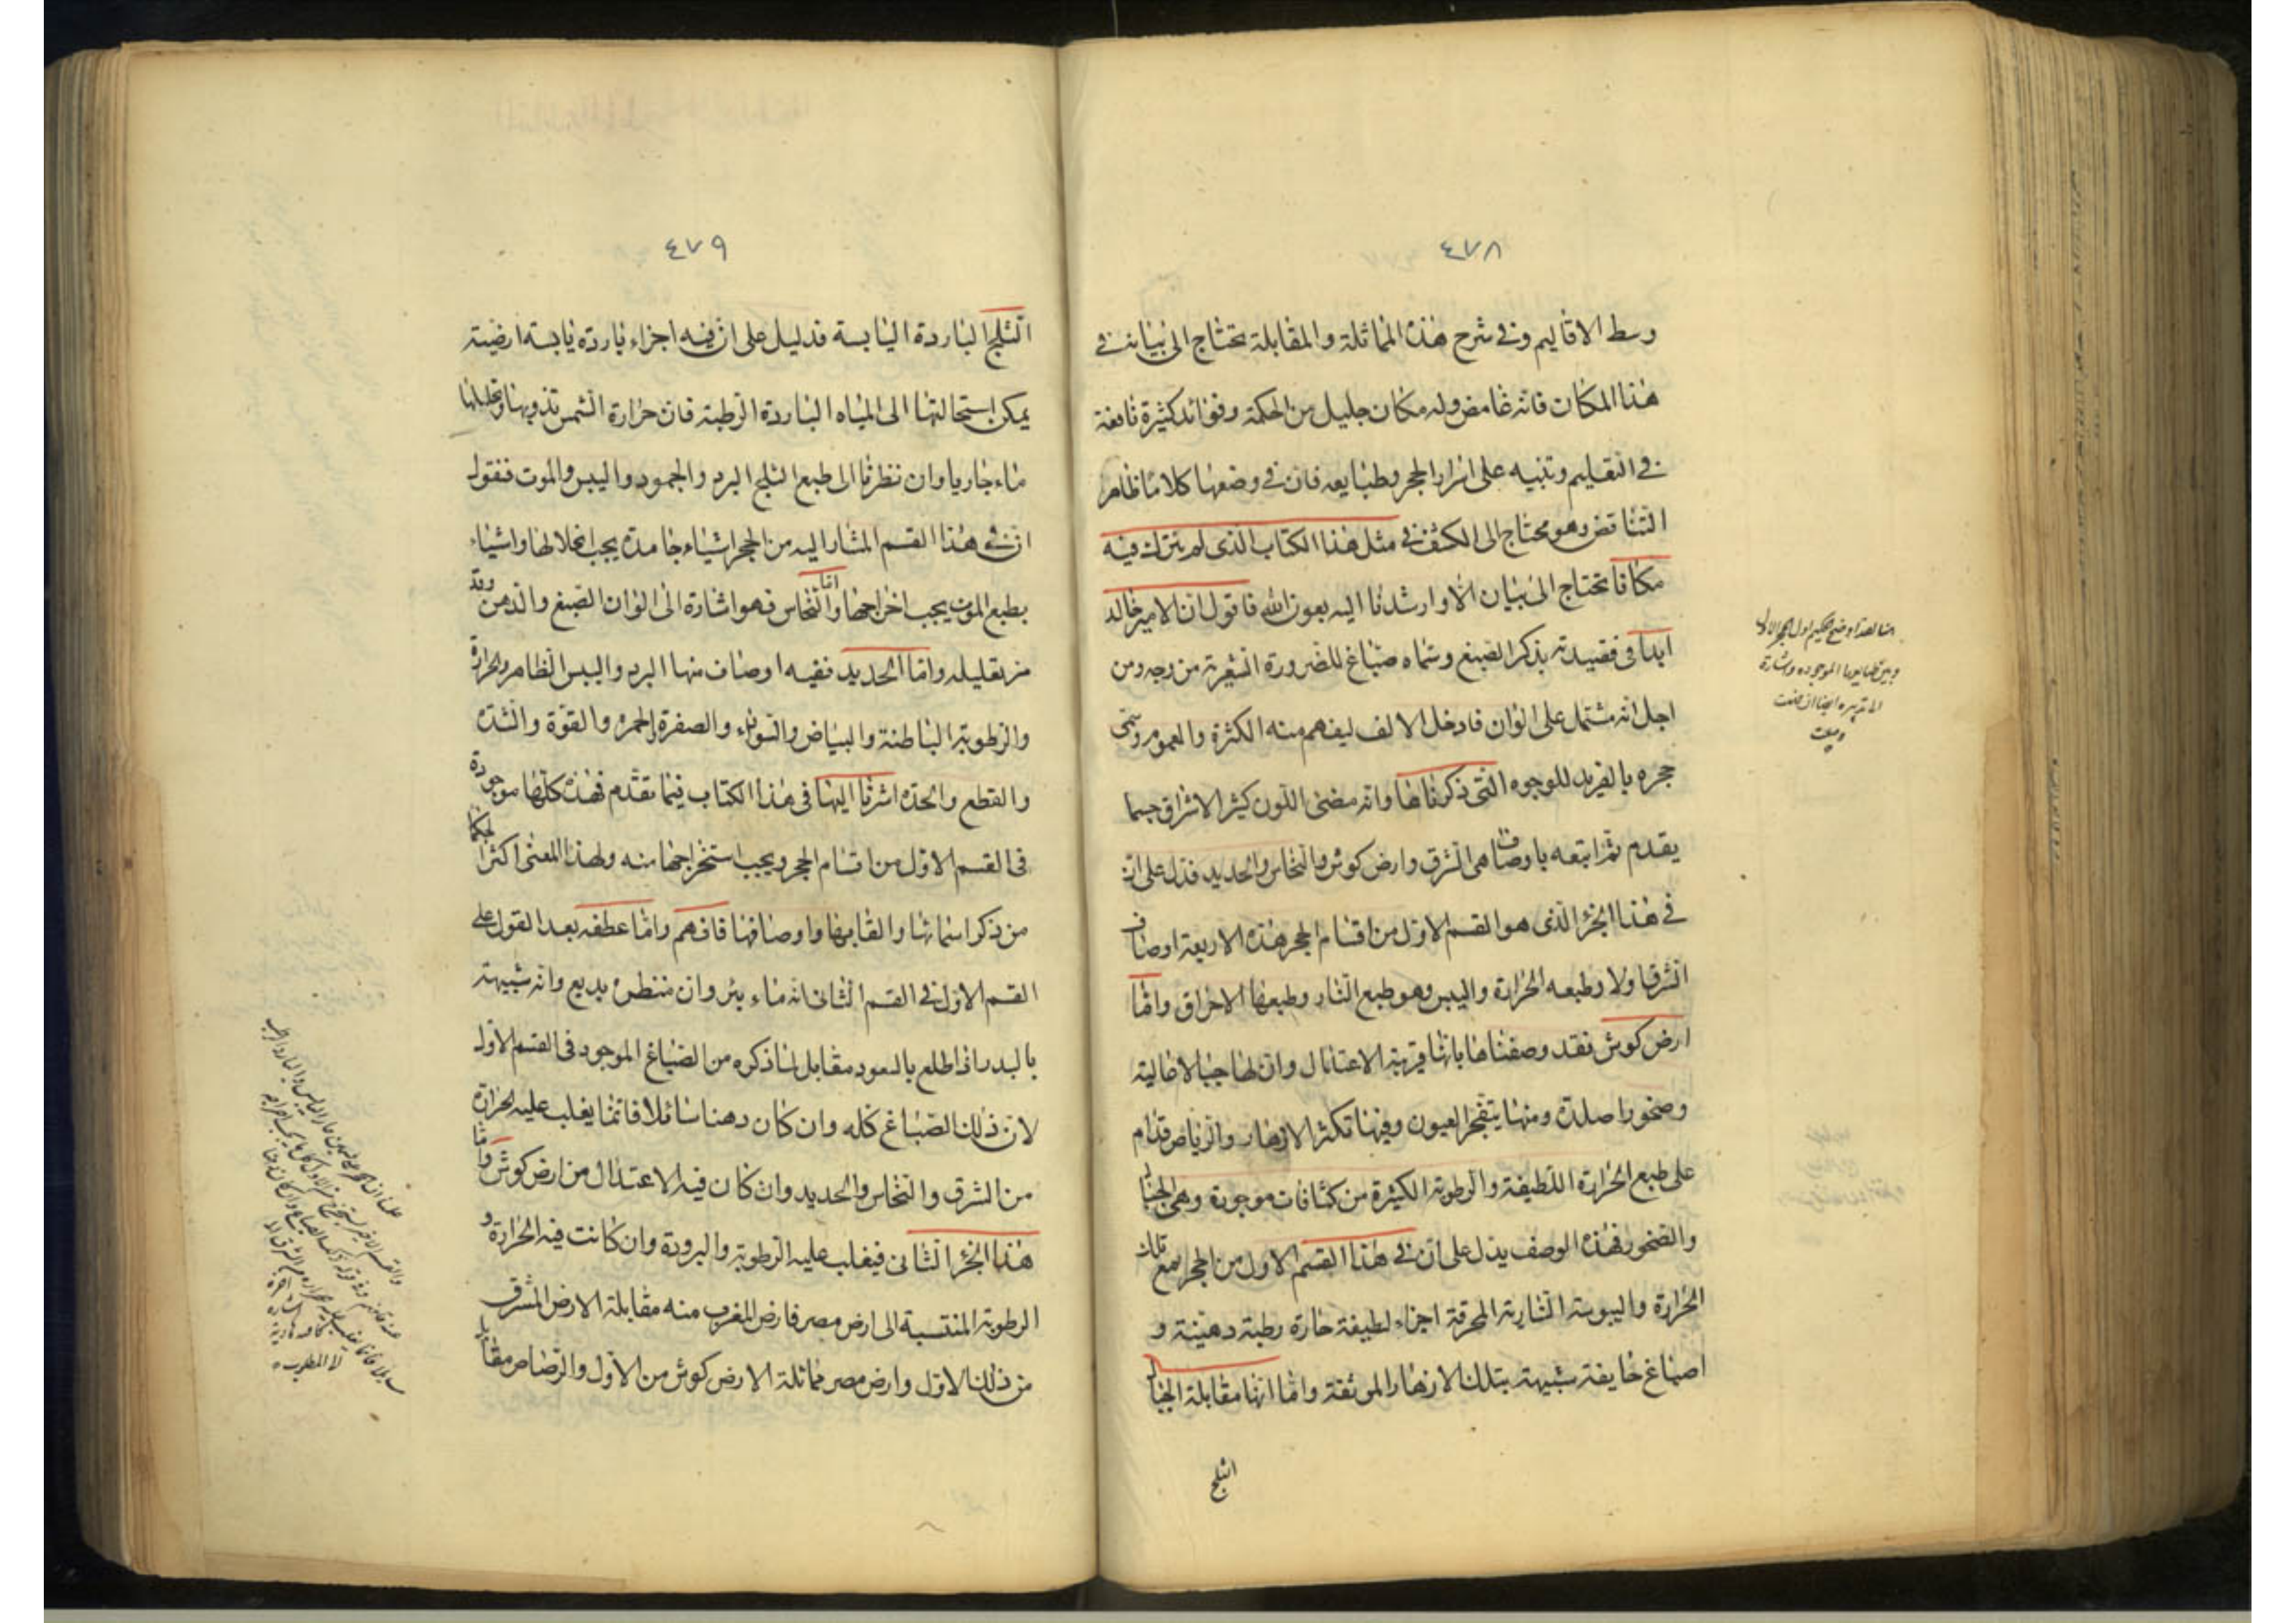 ٤٧٨
وسط الاقاليم وفى شرح هذه المماثلة والمقابلة تحتاج الى بيان فى
هذا المكان فانه غامض وله مكان جليل من الحكمة وفوائد كثيرة نافعة
فى التعليم وتنبيه على اسرار الحجر وطبايعه فان فى وضعها كلاما ظاهر
التناقض وهو محتاج الى الكشف فى مثل هذا الكتاب الذى لم نترك فيه
مكانا تحتاج الى بيان الا وارشدنا اليه بعون الله فاقول ان الامير خالد
ابدا فى قصيدته بذكر الصبغ وسماه صباغ للضرورة الشعرية من وجه ومن
اجل انه مشتمل على الوان فادخل الالف ليفهم منه الكثرة والعموم وسمى
حجره بالفريد للوجوه التى ذكرناها وانه مضئ اللون كثير الاشراق حسبما
يقدم ثم اتبعه باوصاف هى الشرق وارض كوش والنحاس والحديد فدل على ان
فى هذا الجزء الذى هو القسم الاول من اقسام الحجر هذه الاربعة اوصاف
الشرق اولا وطبعه الحرارة واليبس وهو طبع النار وطبعها الاحراق واما
ارض كوش فقد وصفناها بانها قريبة الاعتدال وان لها جبالا عالية
وصخورا صلدة ومنها يتفجر العيون وفيها تكثر الازهار والرياض فدل
على طبع الحرارة اللطيفة والرطوبة الكثيرة من كثافات موجودة وهى الجبال
والصخور فهذه الوصف يدل على ان فى هذا القسم الاول من الحجر مع تلك
الحرارة واليبوسة النارية المحرقة اجزاء لطيفة حارة رطبة دهنية و
اصباغ شبيهة بتلك الازهار المونقة واما انها مقابلة الجبال
الثلج
٤٧٩
الثلج الباردة اليابسة فدليل على ان فيه اجزاء باردة يابسة ارضية
يمكن استحالتها الى المياه الباردة الرطبة فان حرارة الشمس تذوبها وتحللها
ماء جاريا وان نظرنا الى طبع الثلج البرد والجمود واليبس والموت فنقول
ان فى هذا القسم المشار اليه من الحجر اشياء جامدة يجب انحلالها واشياء
بطبع الموت يجب اخراجها واما النحاس فهو اشارة الى الوان الصبغ والدهن وقد
مر تعليله واما الحديد ففيه اوصاف منها البرد واليبس الظاهر والحرارة
والرطوبة الباطنة والبياض والسواد والصفرة والحمره والقوة والشدة
والقطع والحدة اشرنا اليها فى هذا الكتاب فيما تقدم فهذه كلها موجودة
فى القسم الاول من اقسام الحجر ويجب استخراجها منه ولهذا المعنى اكثر الحكما
من ذكر اسمائها والقابها واوصافها فافهم واما عطفه بعد القول على
القسم الاول فى القسم الثانى انه ماء بئر وان منظره بديع وانه شبيهة
بالبدر اذ اطلع بالسعود مقابل لما ذكره من الصباغ الموجود فى القسم الاول
لان ذلك الصباغ كله وان كان دهنا سائلا فانما يغلب عليه الحرارة
من الشرق والنحاس والحديد وان كان فيه الاعتدال من ارض كوش واما
هذا الجزء الثانى فيغلب عليه الرطوبة والبرودة وان كانت فيه الحرارة و
الرطوبة المنتسبة الى ارض مصر فارض المغرب منه مقابلة الارض المشرق
من ذلك الاول وارض مصر مماثلة الارض كوش من الاول والرصاص مقابل